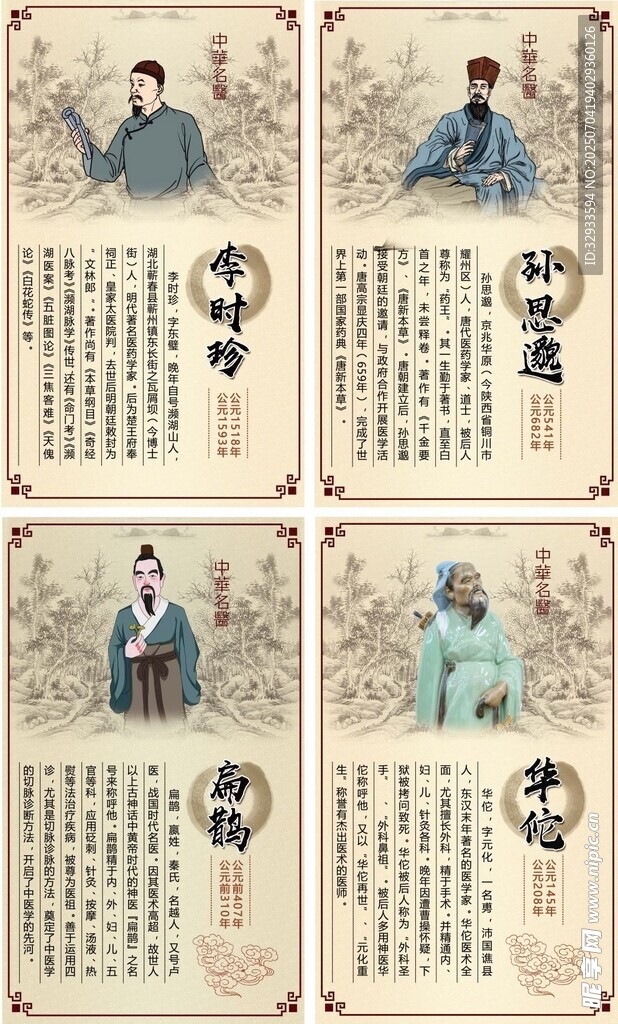 中華名醫
李时珍
公元1518年
公元1593年
李时珍，字东璧，晚年自号濒湖山人，
湖北蕲春县蕲州镇东长街之瓦屑坝（今博士
街）人，明代著名医药学家。后为楚王府奉
祠正、皇家太医院判，去世后明朝廷敕封为
“文林郎”。著作尚有《本草纲目》《奇经
八脉考》《濒湖脉学》传世，还有《命门考》《濒
湖医案》《五脏图论》《三焦客难》《天傀
论》《白花蛇传》等。
中華名醫
孙思邈
公元541年
公元682年
孙思邈，京兆华原（今陕西省铜川市
耀州区）人，唐代医药学家、道士，被后人
尊称为“药王”。其一生勤于著书，直至白
首之年，未尝释卷。著作有《千金要
方》、《唐新本草》。唐朝建立后，孙思邈
接受朝廷的邀请，与政府合作开展医学活
动。唐高宗显庆四年（659年），完成了世
界上第一部国家药典《唐新本草》。
中華名醫
扁鹊
公元前407年
公元前310年
扁鹊，嬴姓，秦氏，名越人，又号卢
医，战国时代名医。因其医术高超，故世人
以上古神话中黄帝时代的神医『扁鹊』之名
号来称呼他。扁鹊精于内、外、妇、儿、五
官等科，应用砭刺、针灸、按摩、汤液、热
熨等法治疗疾病，被尊为医祖。善于运用四
诊，尤其是切脉诊脉的方法，奠定了中医学
的切脉诊断方法，开启了中医学的先河。
中華名醫
华佗
公元145年
公元208年
华佗，字元化，一名旉，沛国谯县
人，东汉末年著名的医学家。华佗医术全
面，尤其擅长外科，精于手术。并精通内、
妇、儿、针灸各科。晚年因遭曹操怀疑，下
狱被拷问致死。华佗被后人称为“外科圣
手”、“外科鼻祖”。被后人多用神医华
佗称呼他，又以“华佗再世”、“元化重
生”称誉有杰出医术的医师。
ID:32933594 NO:20250704194029360126
昵享网 www.nipic.cn